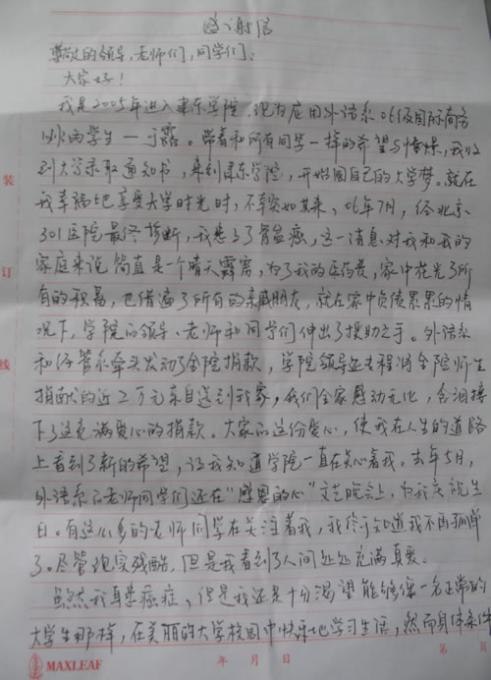 感谢信
尊敬的领导,老师们,同学们:
大家好!
我是2005年进入东学院,现为应用外语系06级国际商务
学生一于露。带着和所有同学一样的希望与憧憬,我收
到大学录取通知书,来到东学院,开始圆自己的大学梦。就在
我幸福地享受大学时光时,不幸突如其来,06年7月,经北京
301医院最终诊断,我患了骨盆癌,这一消息对我和我的
家庭来说简直是个晴天霹雳,为了我的医药费,家中花光了所
有的积蓄,也借遍了所有的亲戚朋友,就在家中负债累累的情
况下,学院的领导、老师和同学们伸出了援助之手。外语系
和经管系牵头发动了全院捐款,学院领导专程将全院师生
捐献的近2万元亲自送到我家,我们全家感动无比,含泪接
下了这充满爱心的捐款。大家的这份爱心,使我在人生的道路
上看到了新的希望,让我知道学院一直在关心着我。去年5月,
外语系的老师同学们还在“感恩的心”文艺晚会上,为我庆祝生
日。有这么多的老师同学在关注着我,我终于知道我不再孤单
了。尽管现实残酷,但是我看到了人间处处充满真爱。
虽然我身患癌症,但是我还是十分渴望能够像一名正常的
大学生那样,在美丽的大学校园中快乐地学习生活,然而身体条件
装
订
线
MAXLEAF 年 月 日 第 页